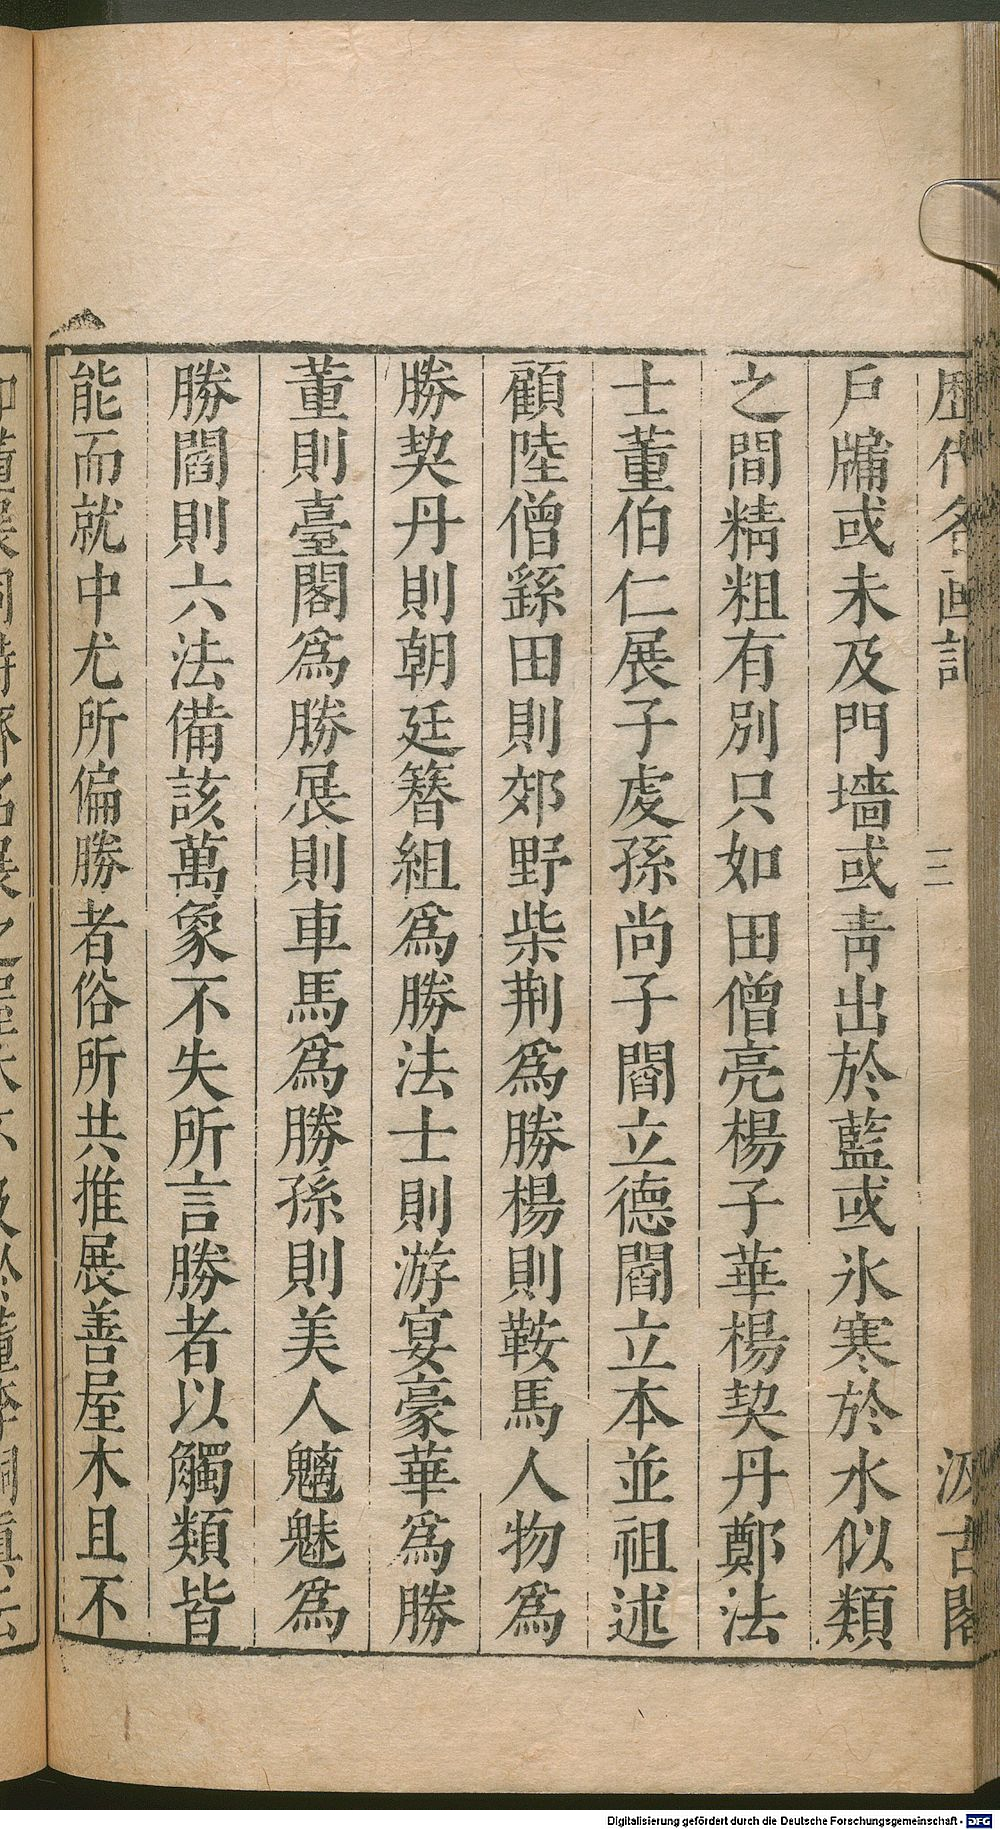 歷代名画記 三 汲古閣
戶牖或未及門墻或靑出於藍或氷寒於水似類
之間精粗有別只如田僧亮楊子華楊契丹鄭法
士董伯仁展子虔孫尚子閻立德閻立本並祖述
顧陸僧繇田則郊野柴荆爲勝楊則鞍馬人物爲
勝契丹則朝廷簪組爲勝法士則游宴豪華爲勝
董則臺閣爲勝展則車馬爲勝孫則美人魑魅爲
勝閻則六法備該萬象不失所言勝者以觸類皆
能而就中尤所偏勝者俗所共推展善屋木且不
Digitalisierung gefördert durch die Deutsche Forschungsgemeinschaft - DFG